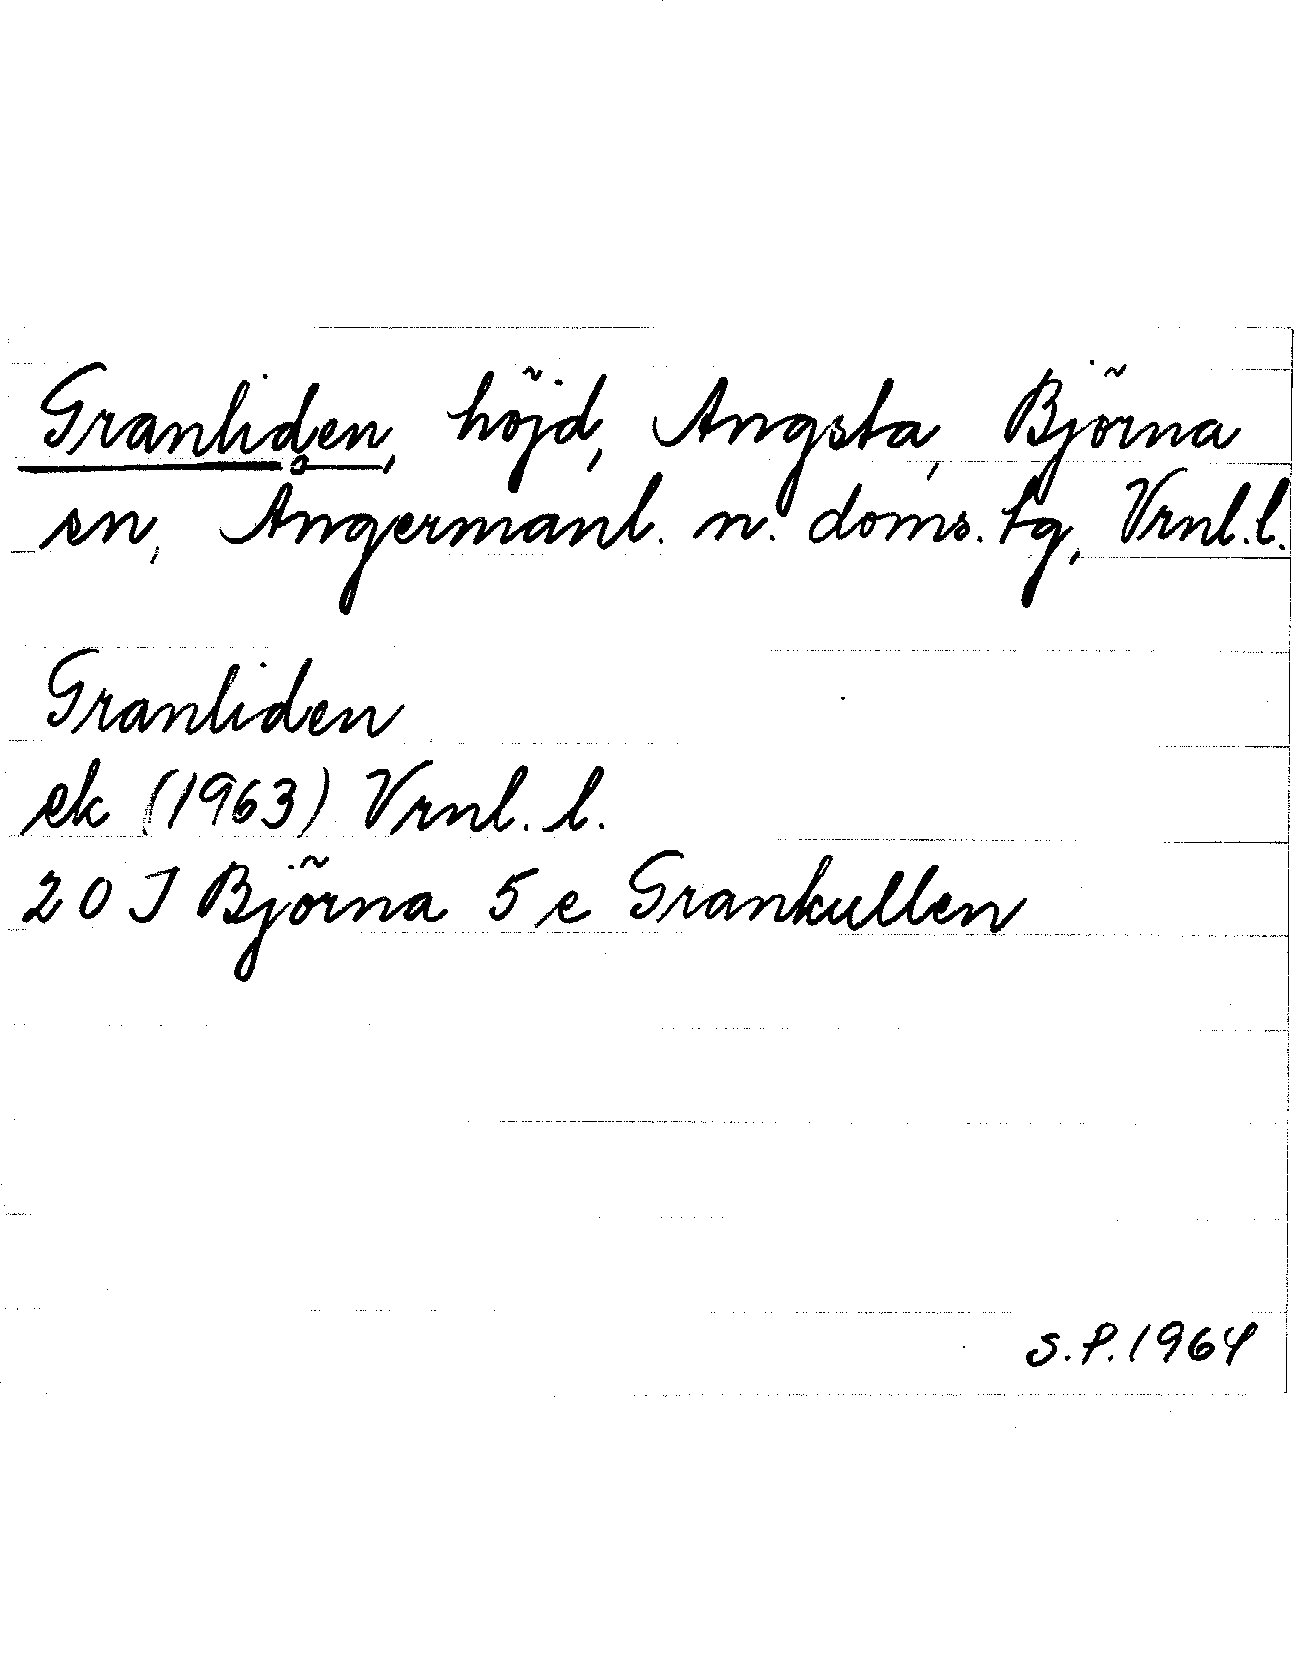 Granliden, höjd, Angsta, Björna
sn, Ångermanl. n. doms. tg, Vrnl. l.
Granliden
ek (1963) Vrnl. l.
20 J Björna 5 e Grankullen
S.P. 1964